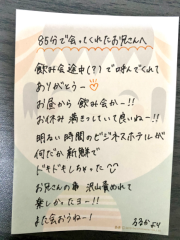 85分で会ってくれたお兄さんへ
飲み会途中(?)で呼んでくれて
ありがとうー♡
お昼から飲み会かー!!
お休み満きつしていて良いねー!!
明るい時間のビジネスホテルが
何だか新鮮で
ドキドキしちゃった
お兄さんの事 沢山責めれて
楽しかったヨー!!
また会おうねー!
うるかより